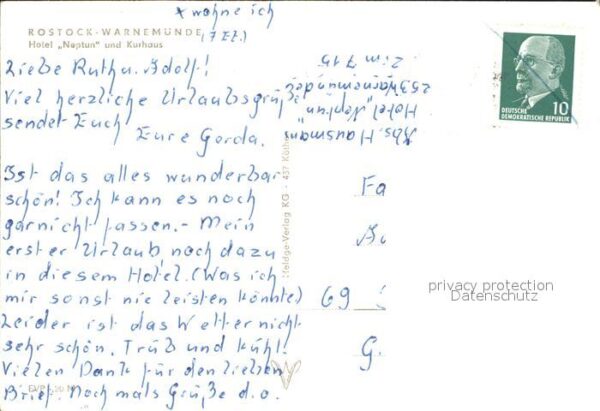 x wohne ich
ROSTOCK-WARNEMÜNDE
Hotel „Neptun" und Kurhaus
(7 Et.)
Liebe Ruth u. Adolf!
Viel herzliche Urlaubsgrüße
sendet Euch
Eure Gerda.
Ist das alles wunderbar
schön! Ich kann es noch
garnicht fassen. - Mein
erster Urlaub noch dazu
in diesem Hotel. (Was ich
mir sonst nie leisten könnte)
Leider ist das Wetter nicht
sehr schön. Trüb und kühl!
Vielen Dank für den lieben
Brief. Noch mals Grüße d.o.
Abs. Hausmann
Hotel „Neptun"
253 Warnemünde
Zim 715
DEUTSCHE
DEMOKRATISCHE REPUBLIK
10
Verlag KG - 437
Fa
69
G.
privacy protection
Datenschutz